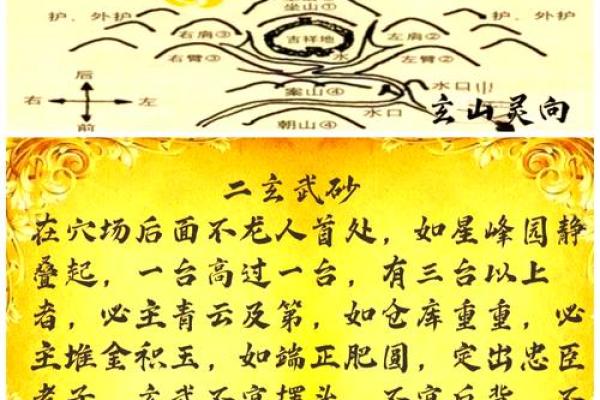 坐山①
护、外护
护、外护
右肩③
吉祥地
左肩②
右臂③
水
左臂②
后
右
左
前
案山④
水口
水口
朝山④
玄山灵向
二玄武砂
在穴场后面不龙人首处，如星峰园静
叠起，一台高过一台，有三台以上
者，必主青云及第，如仓库重重，必
主堆金积玉，如端正肥圆，定出忠臣
孝子，玄武不宜摆头，不宜后背，不